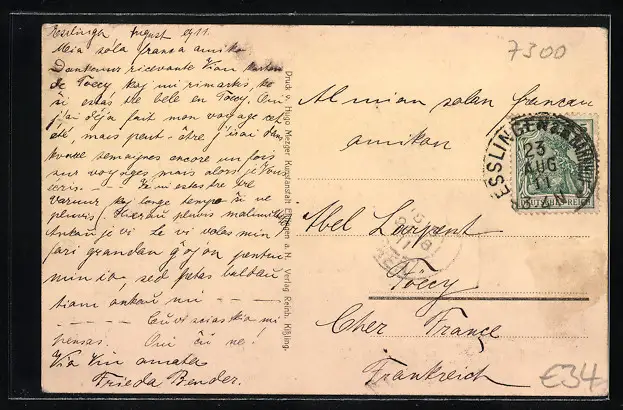 Esslingen August 1911.
Mia sola franca amiko
Dankeme ricevante Vian karton
de Föecy, kaj mi rimarkis, ke
ĝi estas tre bele en Föecy. Oui
j'ai déja fait mon voyage cet
été, mais peut-être j'irai dans
semaines encore un fois
sur voyages mais alors je Vous
écris. - Ĉe ni estas tre tre
varme kaj longe tempo ĝi ne
pluvis. Hieraŭ pluvis malmulte
Ankaŭ je vi Le vi volas min
fari grandan ĝojon
min io, sed petas baldaŭ
tiam ankaŭ mi - - -
- - - Ĉu vi scias kion mi
pensas. Oui ĉu ne!
Via Vin amata
Frieda Bender.
Druck v. Hugo Mezger Kunstanstalt Eßlingen a. N. Verlag Reinh. Kißling.
7300
Al mian solan francan
amikon
ESSLINGEN
23
AUG
11
DEUTSCHES REICH
Abel Larpent
Föecy
Cher France
Frankreich
€34